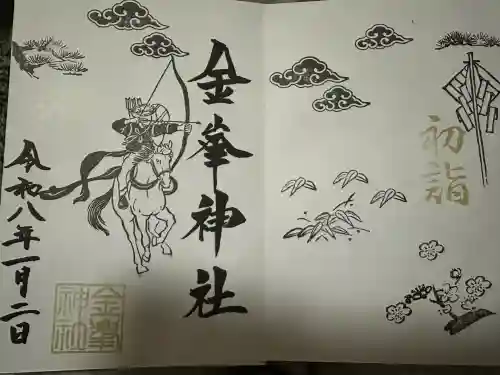 初詣
金峯神社
令和八年一月二日
金峯
神社